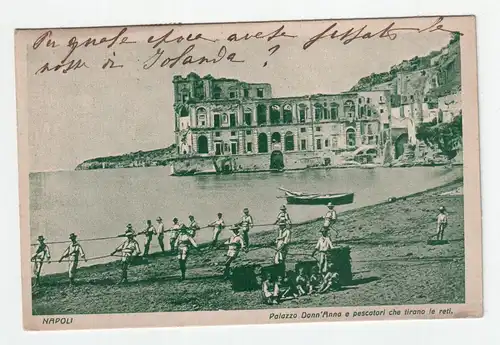 Per quale epoca avese fissato le
nozze di Iolanda?
NAPOLI
Palazzo Donn'Anna e pescatori che tirano le reti.